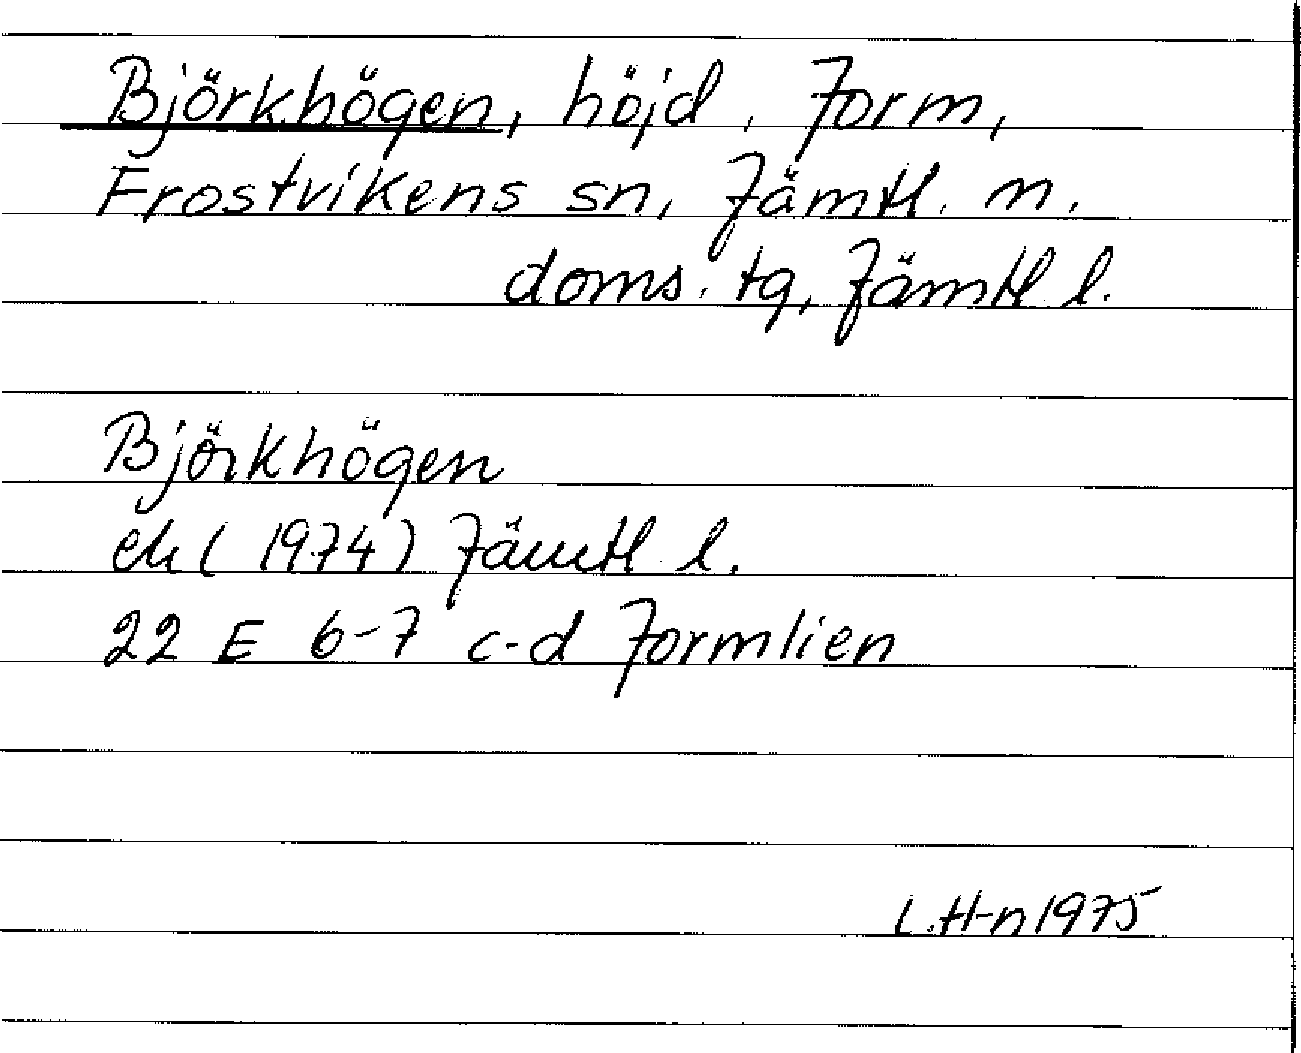 Björkhögen, höjd, Jorm,
Frostvikens sn, Jämtl. n.
doms. tg, Jämtl l.
Björkhögen
ek (1974) Jämtl l.
22 E 6-7 c-d Jormlien
L.H-n 1975